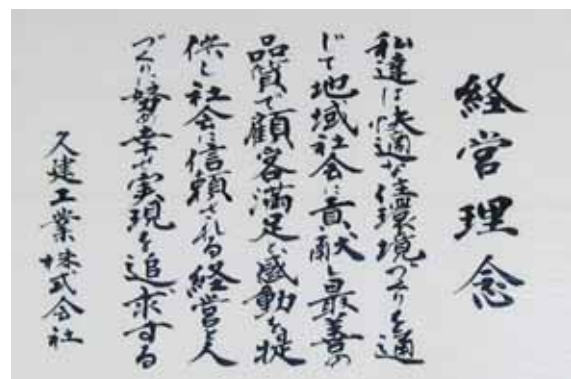 経営理念
私達は快適な住環境づくりを通
じて地域社会に貢献し最善の
品質で顧客満足と感動を提
供し社会に信頼される経営と人
づくりに努め幸せ実現を追求する
久建工業株式会社